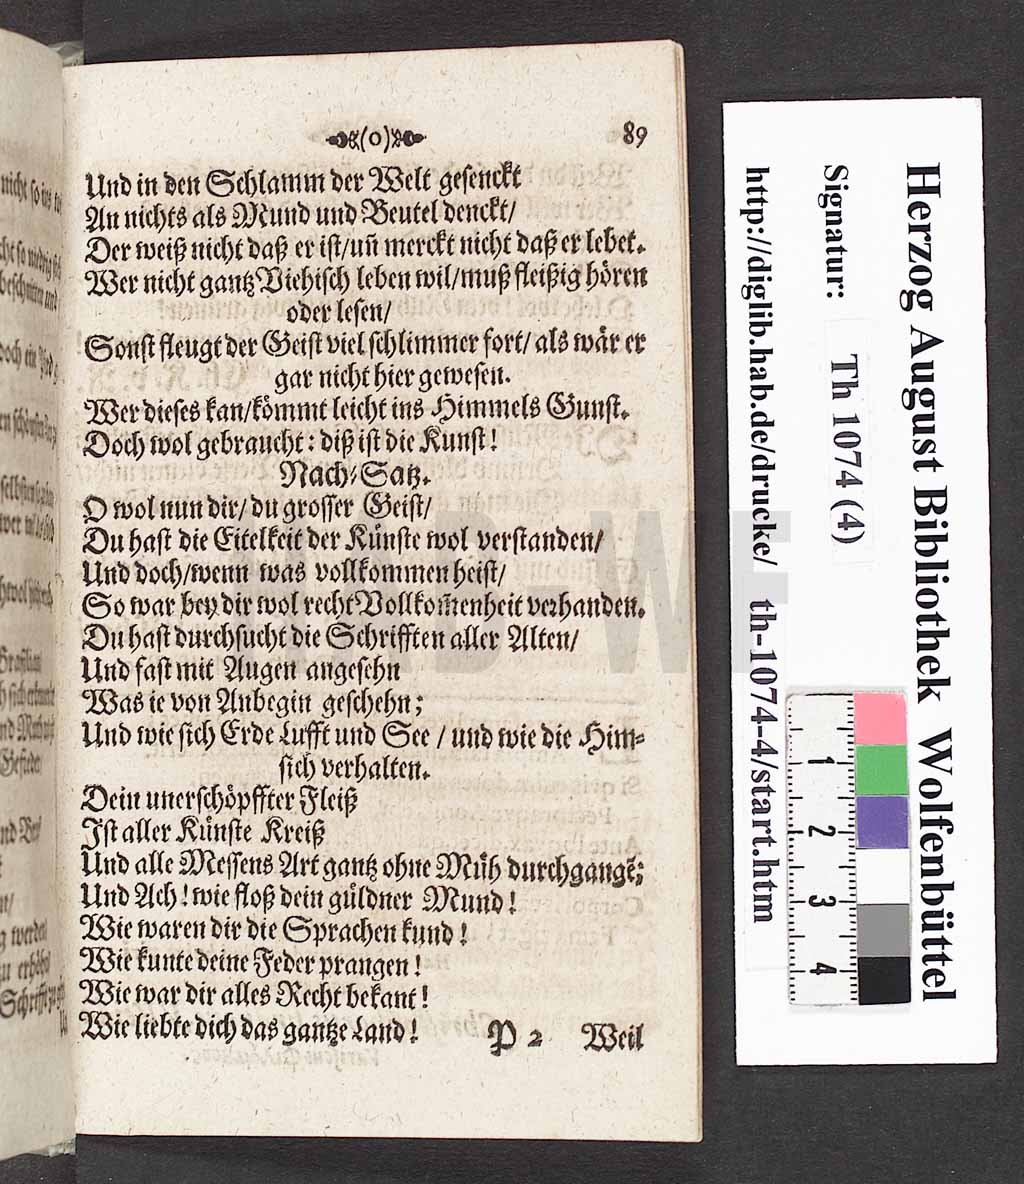 (o) 89
Und in den Schlamm der Welt gesenckt
An nichts als Mund und Beutel denckt/
Der weiß nicht daß er ist/uñ merckt nicht daß er lebet.
Wer nicht gantz Viehisch leben wil/muß fleißig hören
oder lesen/
Sonst fleugt der Geist viel schlimmer fort/ als wär er
gar nicht hier gewesen.
Wer dieses kan/kömmt leicht ins Himmels Gunst.
Doch wol gebraucht: diß ist die Kunst!
Nach-Satz.
O wol nun dir/ du grosser Geist/
Du hast die Eitelkeit der Künste wol verstanden/
Und doch/wenn was vollkommen heist/
So war bey dir wol recht Vollkom̃enheit verhanden.
Du hast durchsucht die Schrifften aller Alten/
Und fast mit Augen angesehn
Was ie von Anbegin geschehn;
Und wie sich Erde Lufft und See / und wie die Him-
sich verhalten.
Dein unerschöpffter Fleiß
Ist aller Künste Kreiß
Und alle Messens Art gantz ohne Müh durchgangẽ;
Und Ach! wie floß dein güldner Mund!
Wie waren dir die Sprachen kund!
Wie kunte deine Feder prangen!
Wie war dir alles Recht bekant!
Wie liebte dich das gantze Land!
P 2 Weil
Herzog August Bibliothek Wolfenbüttel
Signatur: Th 1074 (4)
http://diglib.hab.de/drucke/ th-1074-4/start.htm
1
2
3
4